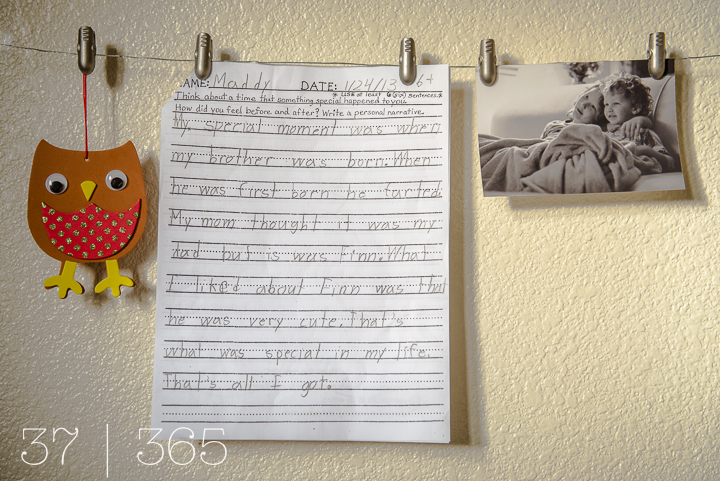 NAME: Maddy DATE: 1/24/13 6+
* Use at least 6 (six) sentences. *
Think about a time that something special happened to you.
How did you feel before and after? Write a personal narrative.
My special moment was when
my brother was born. When
he was first born he farted.
My mom thought it was my
dad but is was Finn. What
I liked about Finn was that
he was very cute. That's
what was special in my life.
That's all I got.
37 | 365